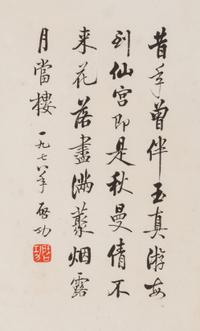 昔年曾伴玉真游每
到仙宮即是秋曼倩不
来花落盡滿叢烟露
月當樓 一九七八年 啓功